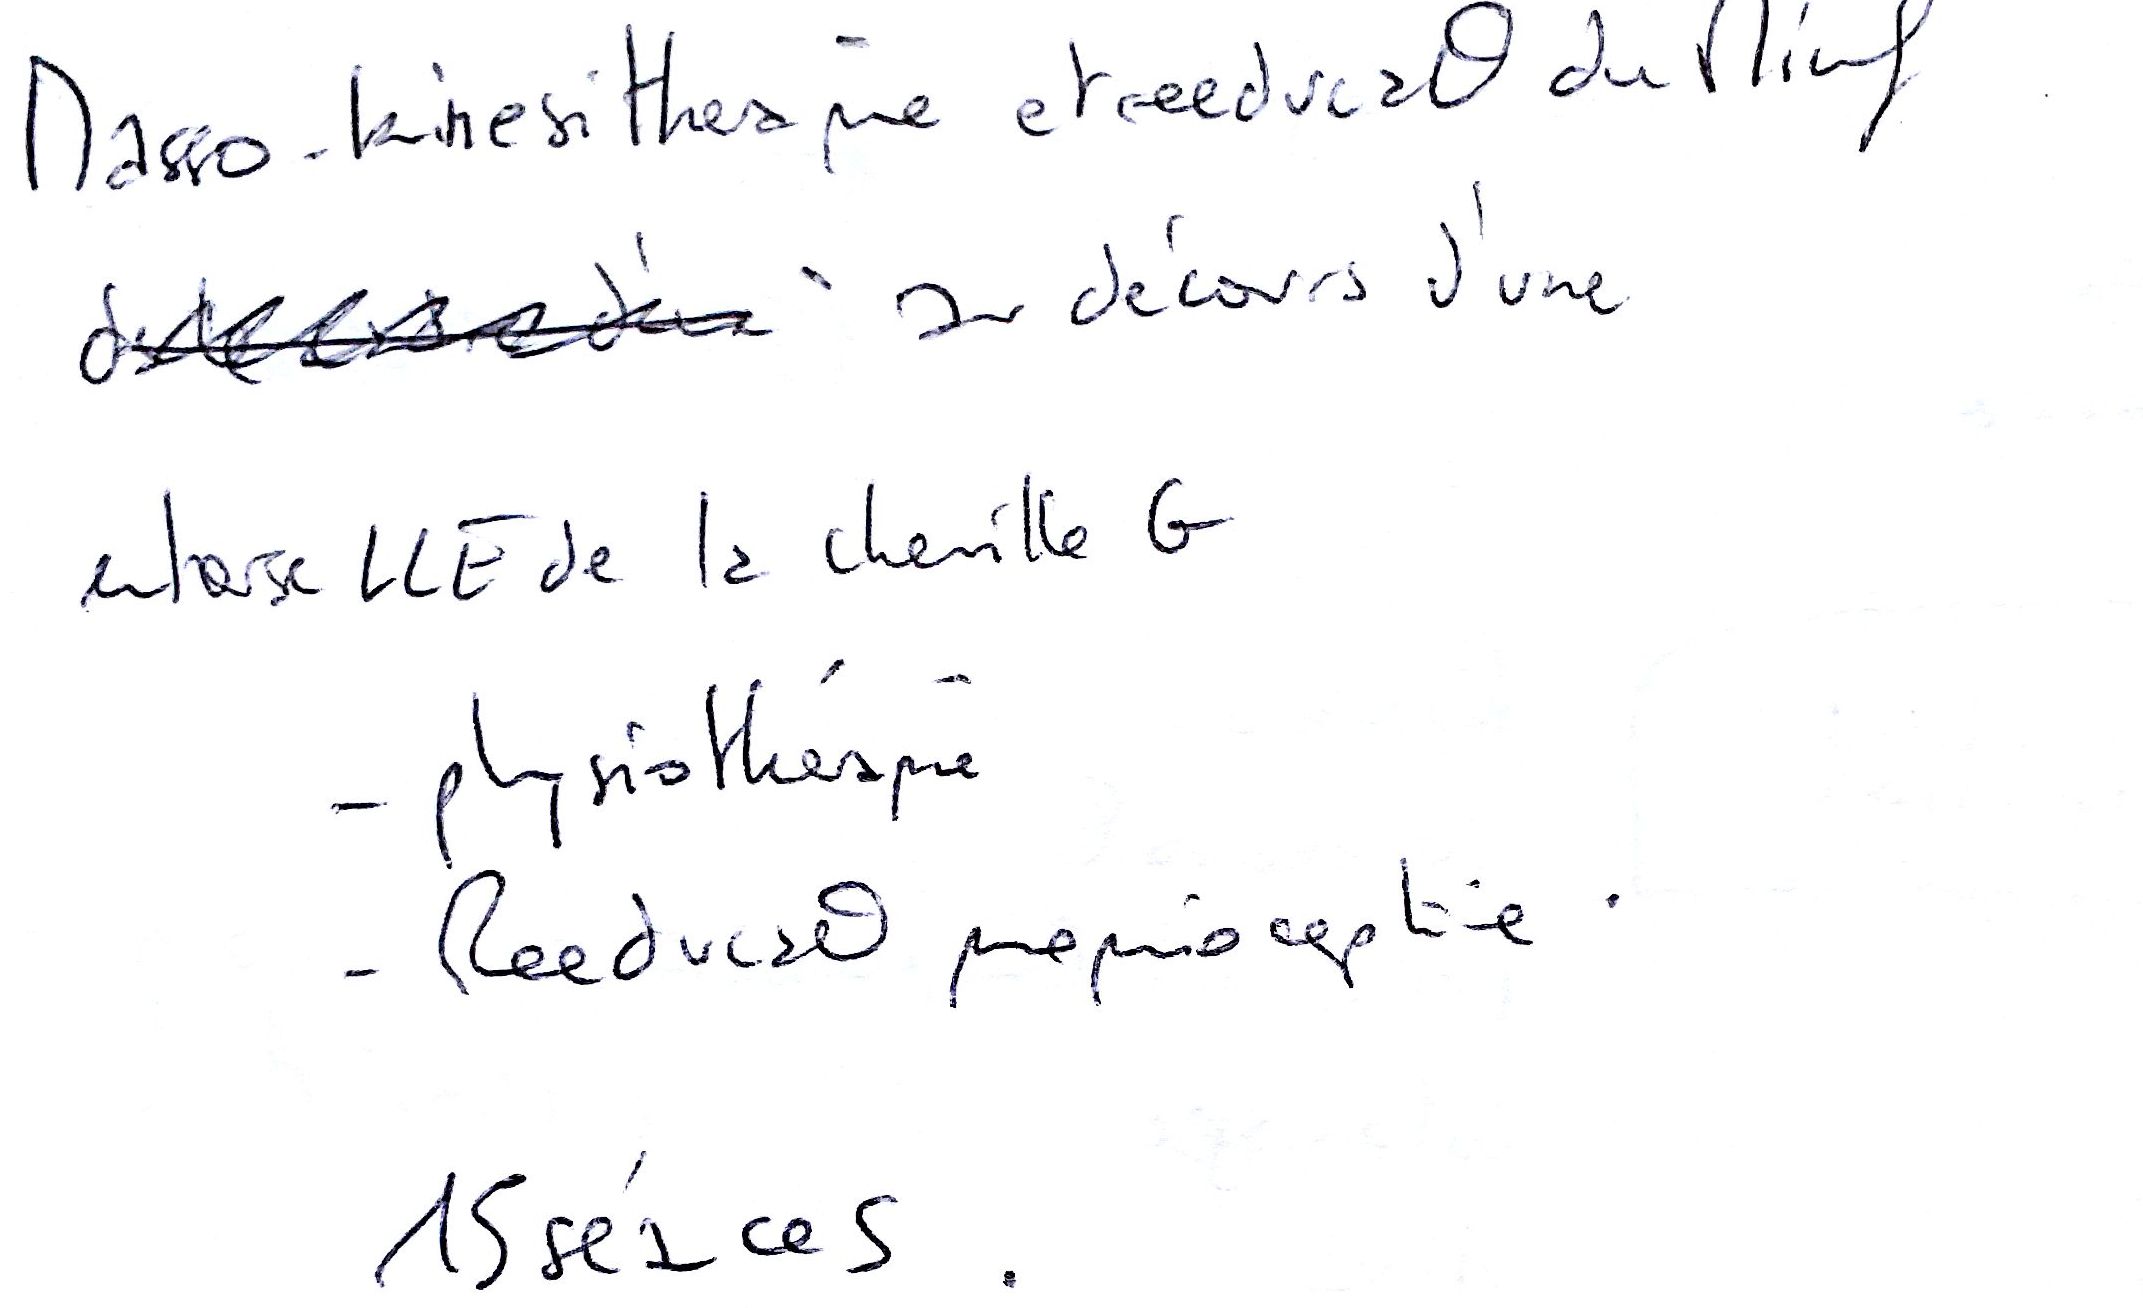 Masso-kinesitherapie et reeducaθ du Minf
au décours d'une
entorse LLE de la cheville G
- physiothérapie
- Reeducaθ proprioceptive.
15 séances.